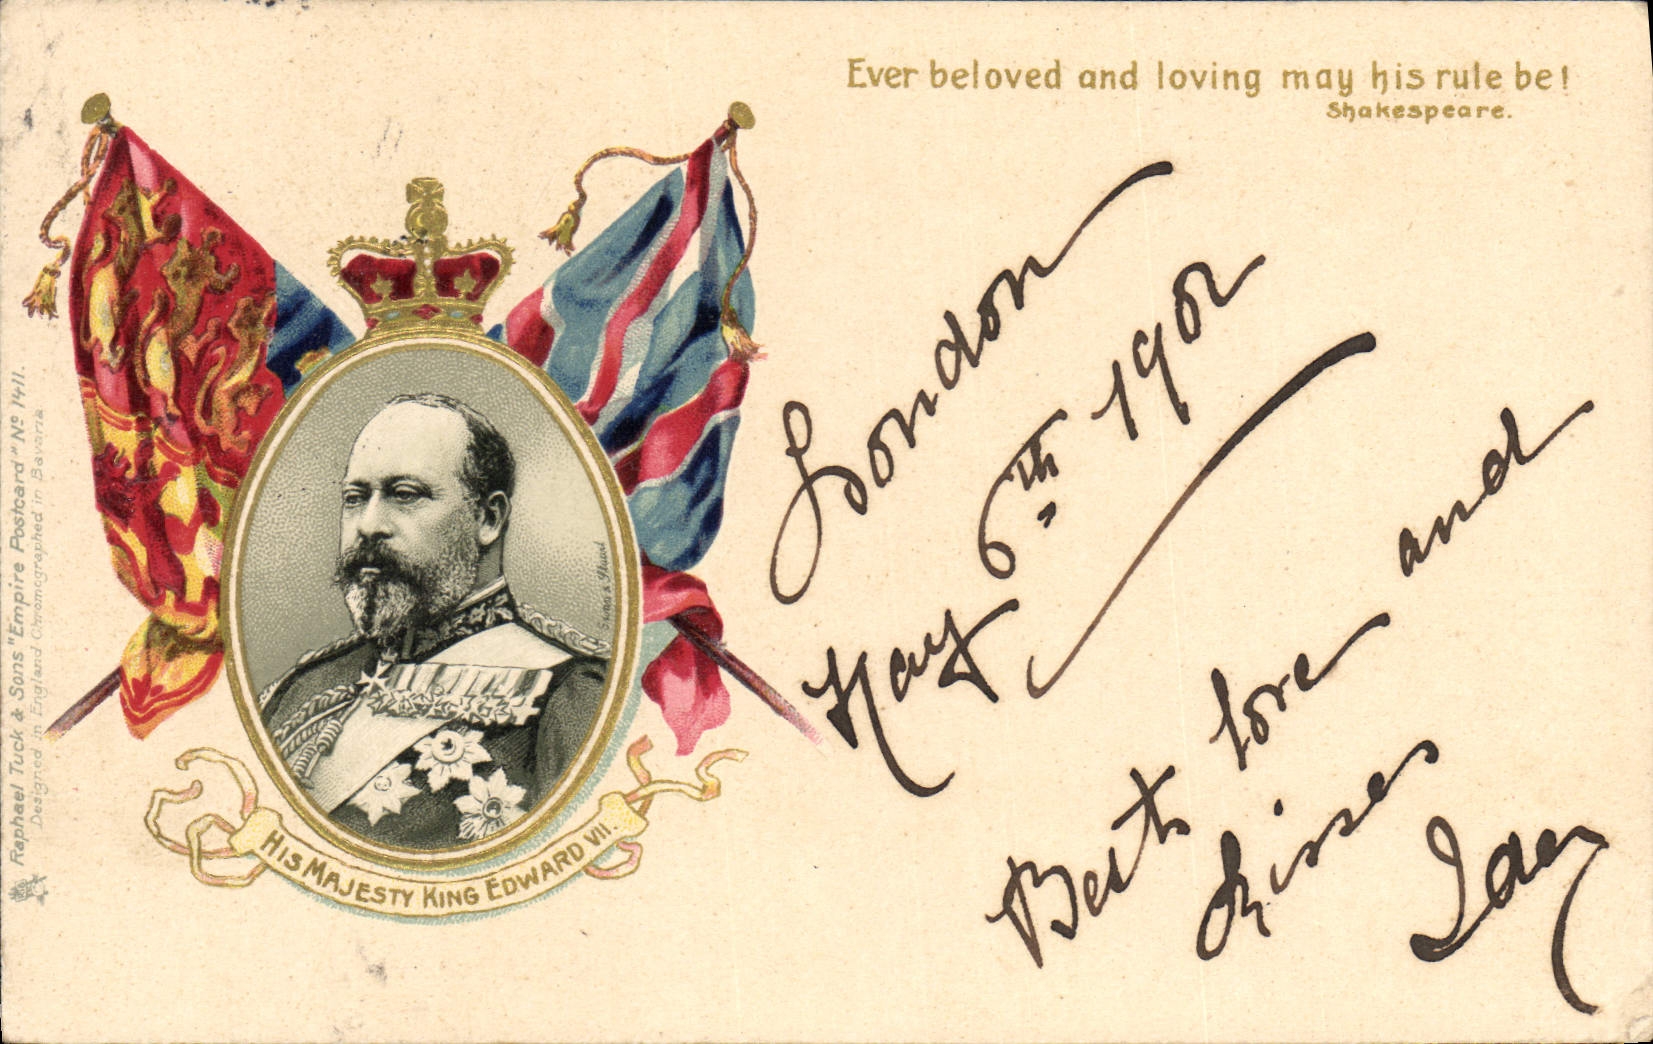 Ever beloved and loving may his rule be!
Shakespeare.
London
May 6th 1902
Best love and
kisses
Ida
HIS MAJESTY KING EDWARD VII.
Raphael Tuck & Sons "Empire Postcard" No 1411.
Designed in England Chromographed in Bavaria